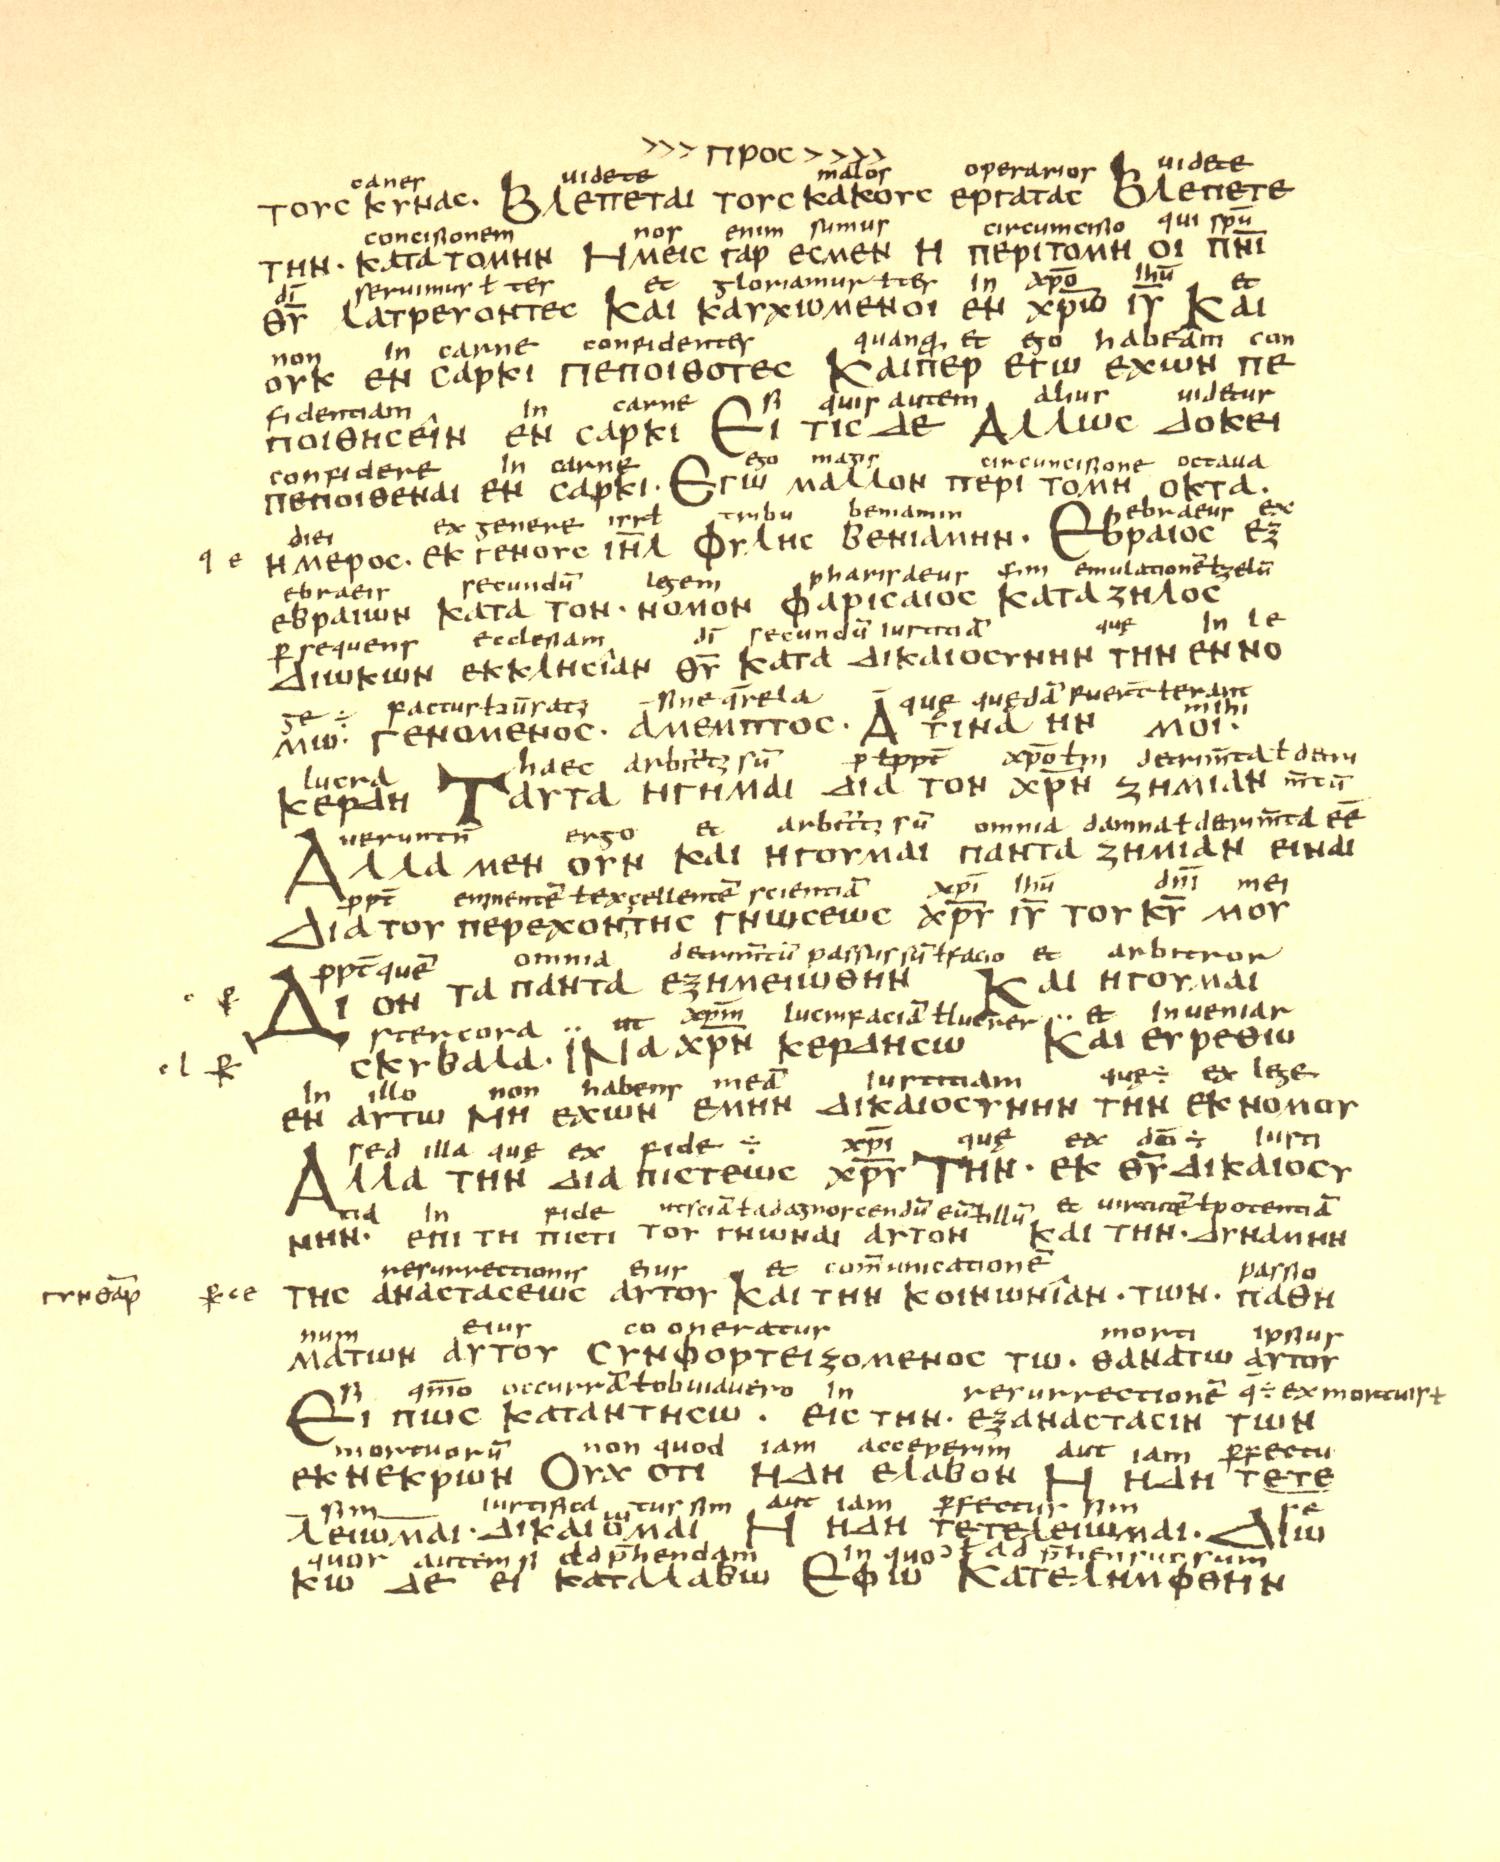 >>> προς >>>>
canes uidete malos operarios uidete
τους κυνας. Βλεπεται τους κακους εργατας Βλεπετε
concisionem nos enim sumus circumcisio qui spū
την. κατα τομην Ημεις γαρ εσμεν η περιτομη οι πν̅ι
dī seruimus ł tes et gloriamur ł tes in xp̅o ihū et
θ̅υ λατρευοντες Και καυχωμενοι εν χρ̅ω ι̅υ Και
non in carne confidentes quanq, et ego habeam con
ουκ εν σαρκι πεποιθοτες Καιπερ εγω εχων πε
fidentiam in carne si quis autem alius uidetur
ποιθησειν εν σαρκι Ει τις δε Αλλως δοκει
confidere in carne ego magis circuncisione octaua
πεποιθεναι εν σαρκι. Εγω μαλλον περι τομη οκτα.
diei ex genere isrł tribu beniamin ebraeus ex
ημερος. εκ γενους ιη̅λ Φυλης βενιαμην. Εβραιος εξ
ebraeis secundū legem pharisaeus scdm emulationē ł zelū
εβραιων κατα τον. νομον Φαρισαιος κατα ζηλος
psequens ecclesiam dī secundū iustitiā quę in le
διωκων εκκλησιαν θ̅υ κατα δικαιοσυνην την εν νο
ge ÷ sine qrela quę quedā mihi
μω. γενομενος. αμεμπτος. Α τινα ην μοι.
lucra haec arbitratz sū
κερδη Ταυτα ηγημαι δια τον χρ̅ν ζημιαν
ueruntā ergo et arbitratz sū omnia damna ł detrimta eē
Αλλα μεν ουν και ηγουμαι παντα ζημιαν ειναι
ppt eminentē ł excellentē scientiā xpī ihū dnī mei
Δια του περεχοντης γνωσεως χρ̅υ ι̅υ του κ̅υ μου
ppt quē omnia detrimtū passus sū ł facio et arbitror
Δι ον τα παντα εζημειωθην Και ηγουμαι
stercora ut xpm lucrifaciā et inueniar
σκυβαλα. ιΝα χρ̅ν κερδησω Και ευρεθω
in illo non habens meā iustitiam quę ÷ ex lege
εν αυτω Μη εχων εμην δικαιοσυνην την εκ νομου
sed illa quę ex fide ÷ xpī quę ex dō ÷ iusti
Αλλα την δια πιστεως χρ̅υ Την. εκ θ̅υ δικαιοσυ
tia in fide ut sciā ł ad agnoscendū eū ł illū et uirtutē ł potentiā
νην. επι τη πιστι του γνωναι αυτον και την. δυναμην
resurrectionis eius et commūnicationē passio
της αναστασεως αυτου Και την κοινωνιαν. των. παθη
num eius cooneratur morti ipsius
ματων αυτου Συνφορτειζομενος τω. θανατω αυτου
si qmo occurrā ł obuiauero in resurrectionē q ÷ ex mortuis ł
Ει πως καταντησω. εις την. εξαναστασιν των
mortuorū non quod iam acceperim aut iam pfectu
εκ νεκρων Ουχ οτι ηδη ελαβον Η ηδη τετε
sim iustifica tus sim aut iam pfectus sim se
λειωμαι. δικαιωμαι Η ηδη τετελειωμαι. Διω
quor autem si adpħendam in quo ł ad pħensus sum
κω δε ει καταλαβω Εφ ω Κατελημφθην